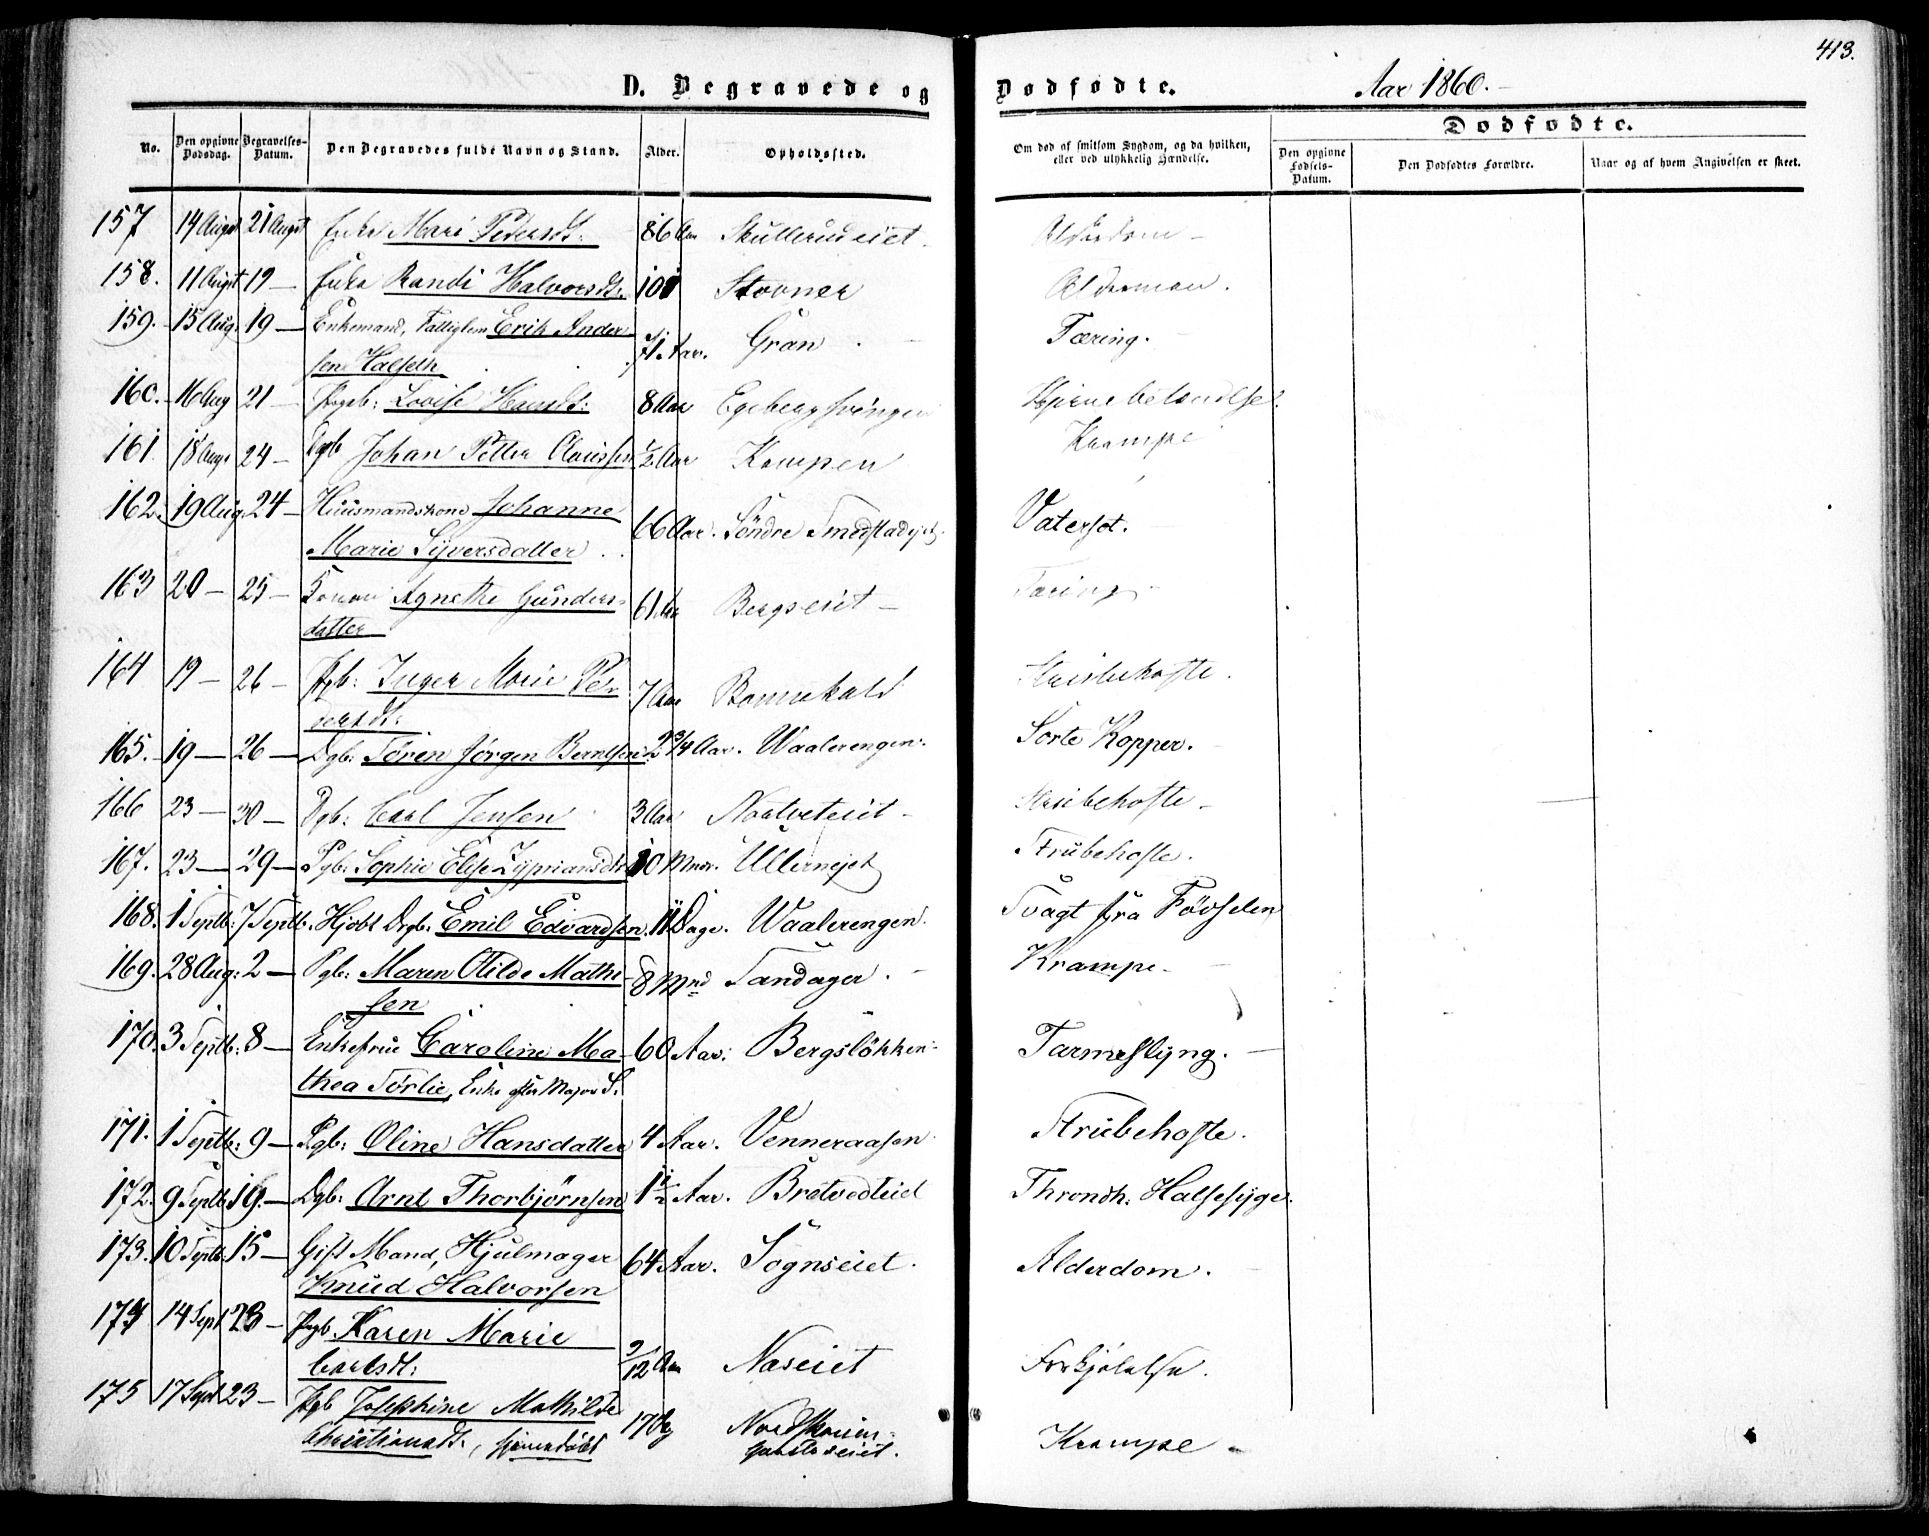 413.
D. Begravede og Dødfødte. Aar 1860.
Dødfødte.
No. Den opgivne Dødsdag. Begravelses-Datum. Den Begravedes fulde Navn og Stand. Alder. Opholdssted. Om død af smitsom Sygdom, og da hvilken, eller ved ulykkelig Hændelse. Den opgivne Fødsels-Datum. Den Dødfødtes Forældre. Naar og af hvem Angivelsen er skeet.
157 14 August 21 August Enke Mari Pedersdt: 86 Aar Skullerudeiet. Alderdom –
158. 11 August 19 — Enke Randi Halvorsdt: 101 Stovner Alderdom.
159. 15 Aug. 19 — Enkemand, Fattiglem Erik Ander-
sen Halseth 71 Aar. Gran. Tæring.
160. 16 Aug 21 — Pgeb: Lovise Hansdt: 8 Aar Egebergsvingen Hjernebetændelse.
161. 18 Aug. 24 — Dgb Johan Petter Claussen ½ Aar Kampen Krampe
162. 19 Aug. 24 — Huusmandskone Johanne
Marie Syversdatter 66 Aar. Søndre Smedstadejet. Vatersot.
163 20 — 25 — Konen Agnethe Gunders-
datter 61 Aar Bergseiet — Tæring
164 19 — 26 — Pgb: Inger Marie Pe-
dersdt: 7 Aar Bonnekald Strubehoste.
165. 19 — 26 — Dgb: Søren Jørgen Berntsen 2 3/4 Aar. Waalerengen. Sorte Kopper.
166 23 — 30 — Dgb: Carl Jensen 3 Aar Nordtveteiet — Strubehoste –
167. 23 — 29 — Pgb: Sophie Elise Zypriansdtr 10 Mnar. Ullernejet Strubehoste.
168. 1 Septb: 7 Septb. Hjdbt Drgb. Emil Edvardsen. 11 Dage. Waalerengen. Svagt fra Fødselen
169. 28 Aug: 2 — Pgb: Maren Otilde Mathi-
sen 8 Mnd Sandager. Krampe.
170. 3 Septb: 8 — Enkefrue Caroline Ma-
thea Sørlie, Enke efter Major S. 60 Aar: Bergsløkken Tarmeslyng.
171. 1 Septb: 9 — Pgb: Oline Hansdatter 4 Aar. Venneraasen Strubehoste.
172. 9 Septb 16. — Dgb: Arnt Thorbjørnsen 1½ Aar. Bratvedteiet Throndh: Halsesyge.
173. 10 Septb: 15 — Gift Mand, Hjulmager
Knud Halvorsen 64 Aar. Sognseiet. Alderdom.
174 14 Sept 23 — Pgb. Karen Marie
Carlsdt: 9/12 Aar Naseiet Forkjølelse.
175 17 Sept 23 — Pgb Josephine Mathilde
Christiansdt:, hjemmedøbt 17 Dg Krampe